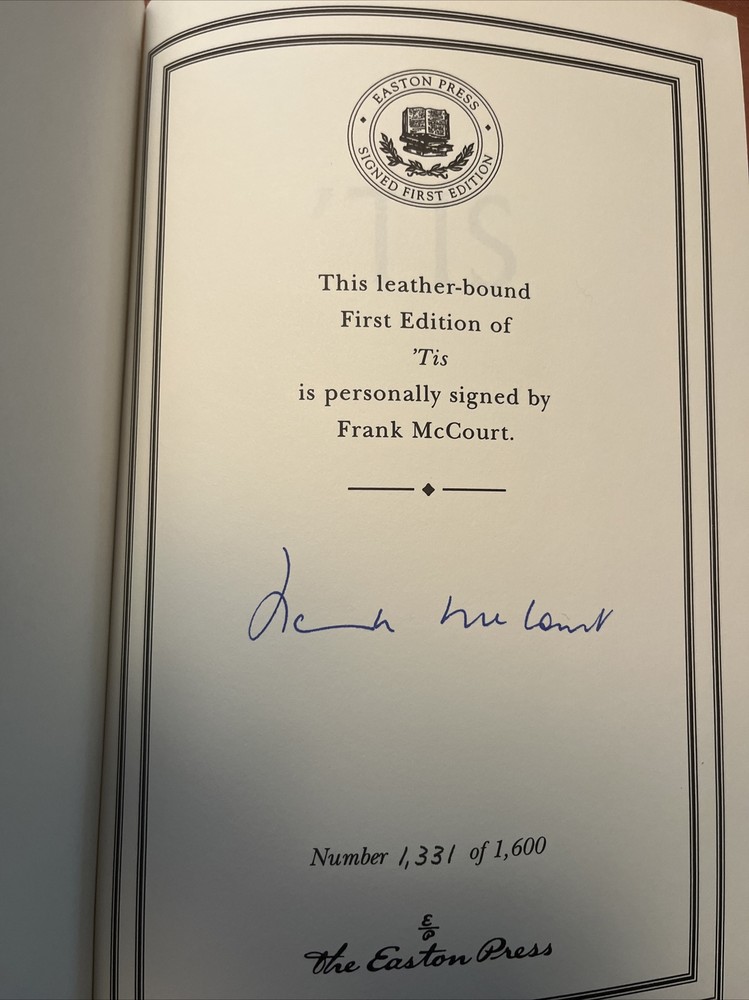 EASTON PRESS
SIGNED FIRST EDITION
'TIS
This leather-bound
First Edition of
'Tis
is personally signed by
Frank McCourt.
Frank McCourt
Number 1,331 of 1,600
E
P
The Easton Press